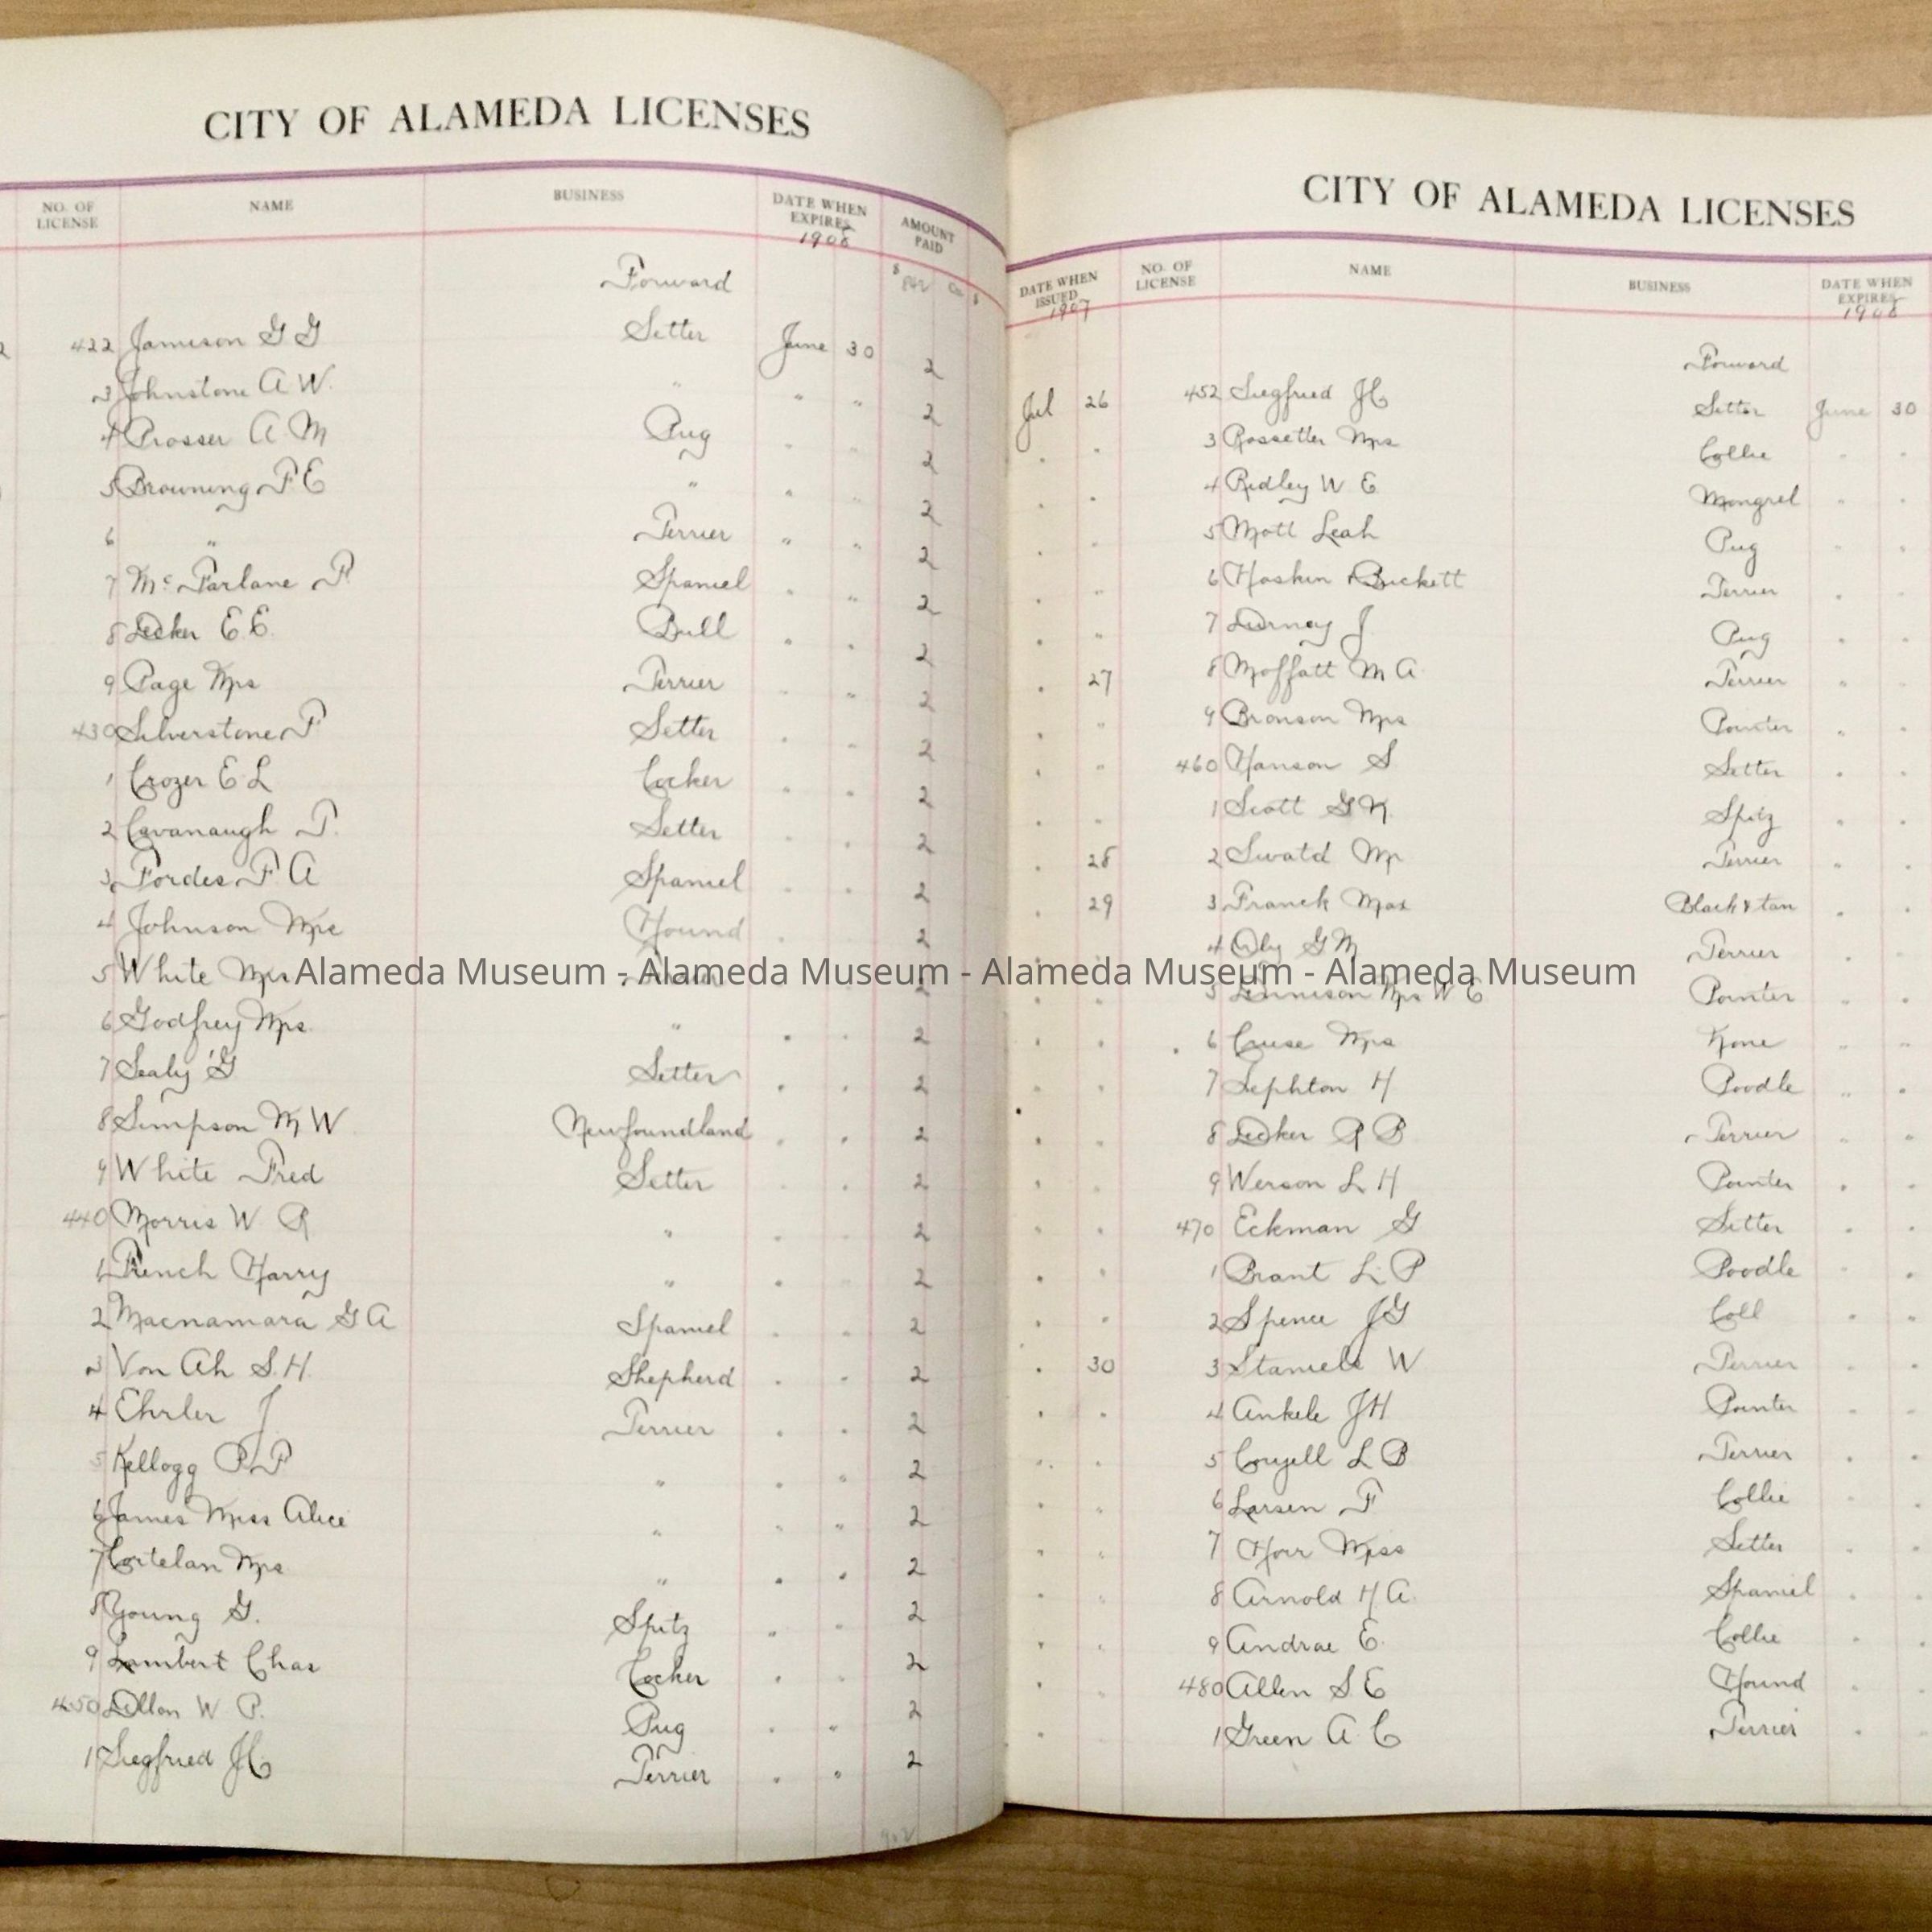 CITY OF ALAMEDA LICENSES
NO. OF LICENSE NAME BUSINESS DATE WHEN EXPIRES 1908 AMOUNT PAID
Forward $ 842
422 Jamieson G G Setter June 30 2
3 Johnstone A W. " " " 2
4 Prosser A M Pug " " 2
5 Browning F E " " " 2
6 " Terrier " " 2
7 Mc Farlane F. Spaniel " " 2
8 Decker E E. Bull " " 2
9 Page Mrs Terrier " " 2
430 Silverstone F Setter " " 2
1 Crozer E L Cocker " " 2
2 Cavanaugh T. Setter " " 2
3 Fordes F A Spaniel " " 2
4 Johnson Mrs Hound " " 2
5 White Mrs 2
6 Godfrey Mrs. " " " 2
7 Sealy G Setter " " 2
8 Simpson M W Newfoundland " " 2
9 White Fred Setter " " 2
440 Morris W R " " " 2
1 French Harry " " " 2
2 Macnamara G A Spaniel " " 2
3 Von Ah S. H. Shepherd " " 2
4 Ehrler J Terrier " " 2
5 Kellogg P. P " " " 2
6 James Miss Alice " " " 2
7 Cortelan Mrs " " " 2
8 Young G. Spitz " " 2
9 Lambert Chas Cocker " " 2
450 Dillon W P. Pug " " 2
1 Siegfried J C Terrier " " 2
902
CITY OF ALAMEDA LICENSES
DATE WHEN ISSUED 1907 NO. OF LICENSE NAME BUSINESS DATE WHEN EXPIRES 1908
Forward
Jul 26 452 Siegfried J C Setter June 30
" " 3 Rossetter Mrs Collie " "
" " 4 Ridley W E. Mongrel " "
" " 5 Mott Leah Pug " "
" " 6 Hoskin Buckett Terrier " "
" " 7 Durney J Pug " "
" 27 8 Moffatt M A. Terrier " "
" " 9 Bronson Mrs Pointer " "
" " 460 Hanson S Setter " "
" " 1 Scott G N. Spitz " "
" 28 2 Swald Mr Terrier " "
" 29 3 Franck Max Black & tan " "
4 G M Terrier " "
" " 5 Dennison Mrs W C Pointer " "
" " 6 Cruse Mrs None " "
" " 7 Sephton H Poodle " "
" " 8 Decker R B Terrier " "
" " 9 Werson L H Pointer " "
" " 470 Eckman G Setter " "
" " 1 Brant L. P Poodle " "
" " 2 Spence J G Coll " "
" 30 3 Staniels W Terrier " "
" " 4 Ankele J H Pointer " "
" " 5 Coryell L B Terrier " "
" " 6 Larsen F Collie " "
" " 7 Horr Miss Setter " "
" " 8 Arnold H A. Spaniel " "
" " 9 Andrae E. Collie " "
" " 480 Allen S E Hound " "
" 1 Green A. C Terrier "
Alameda Museum - Alameda Museum - Alameda Museum - Alameda Museum